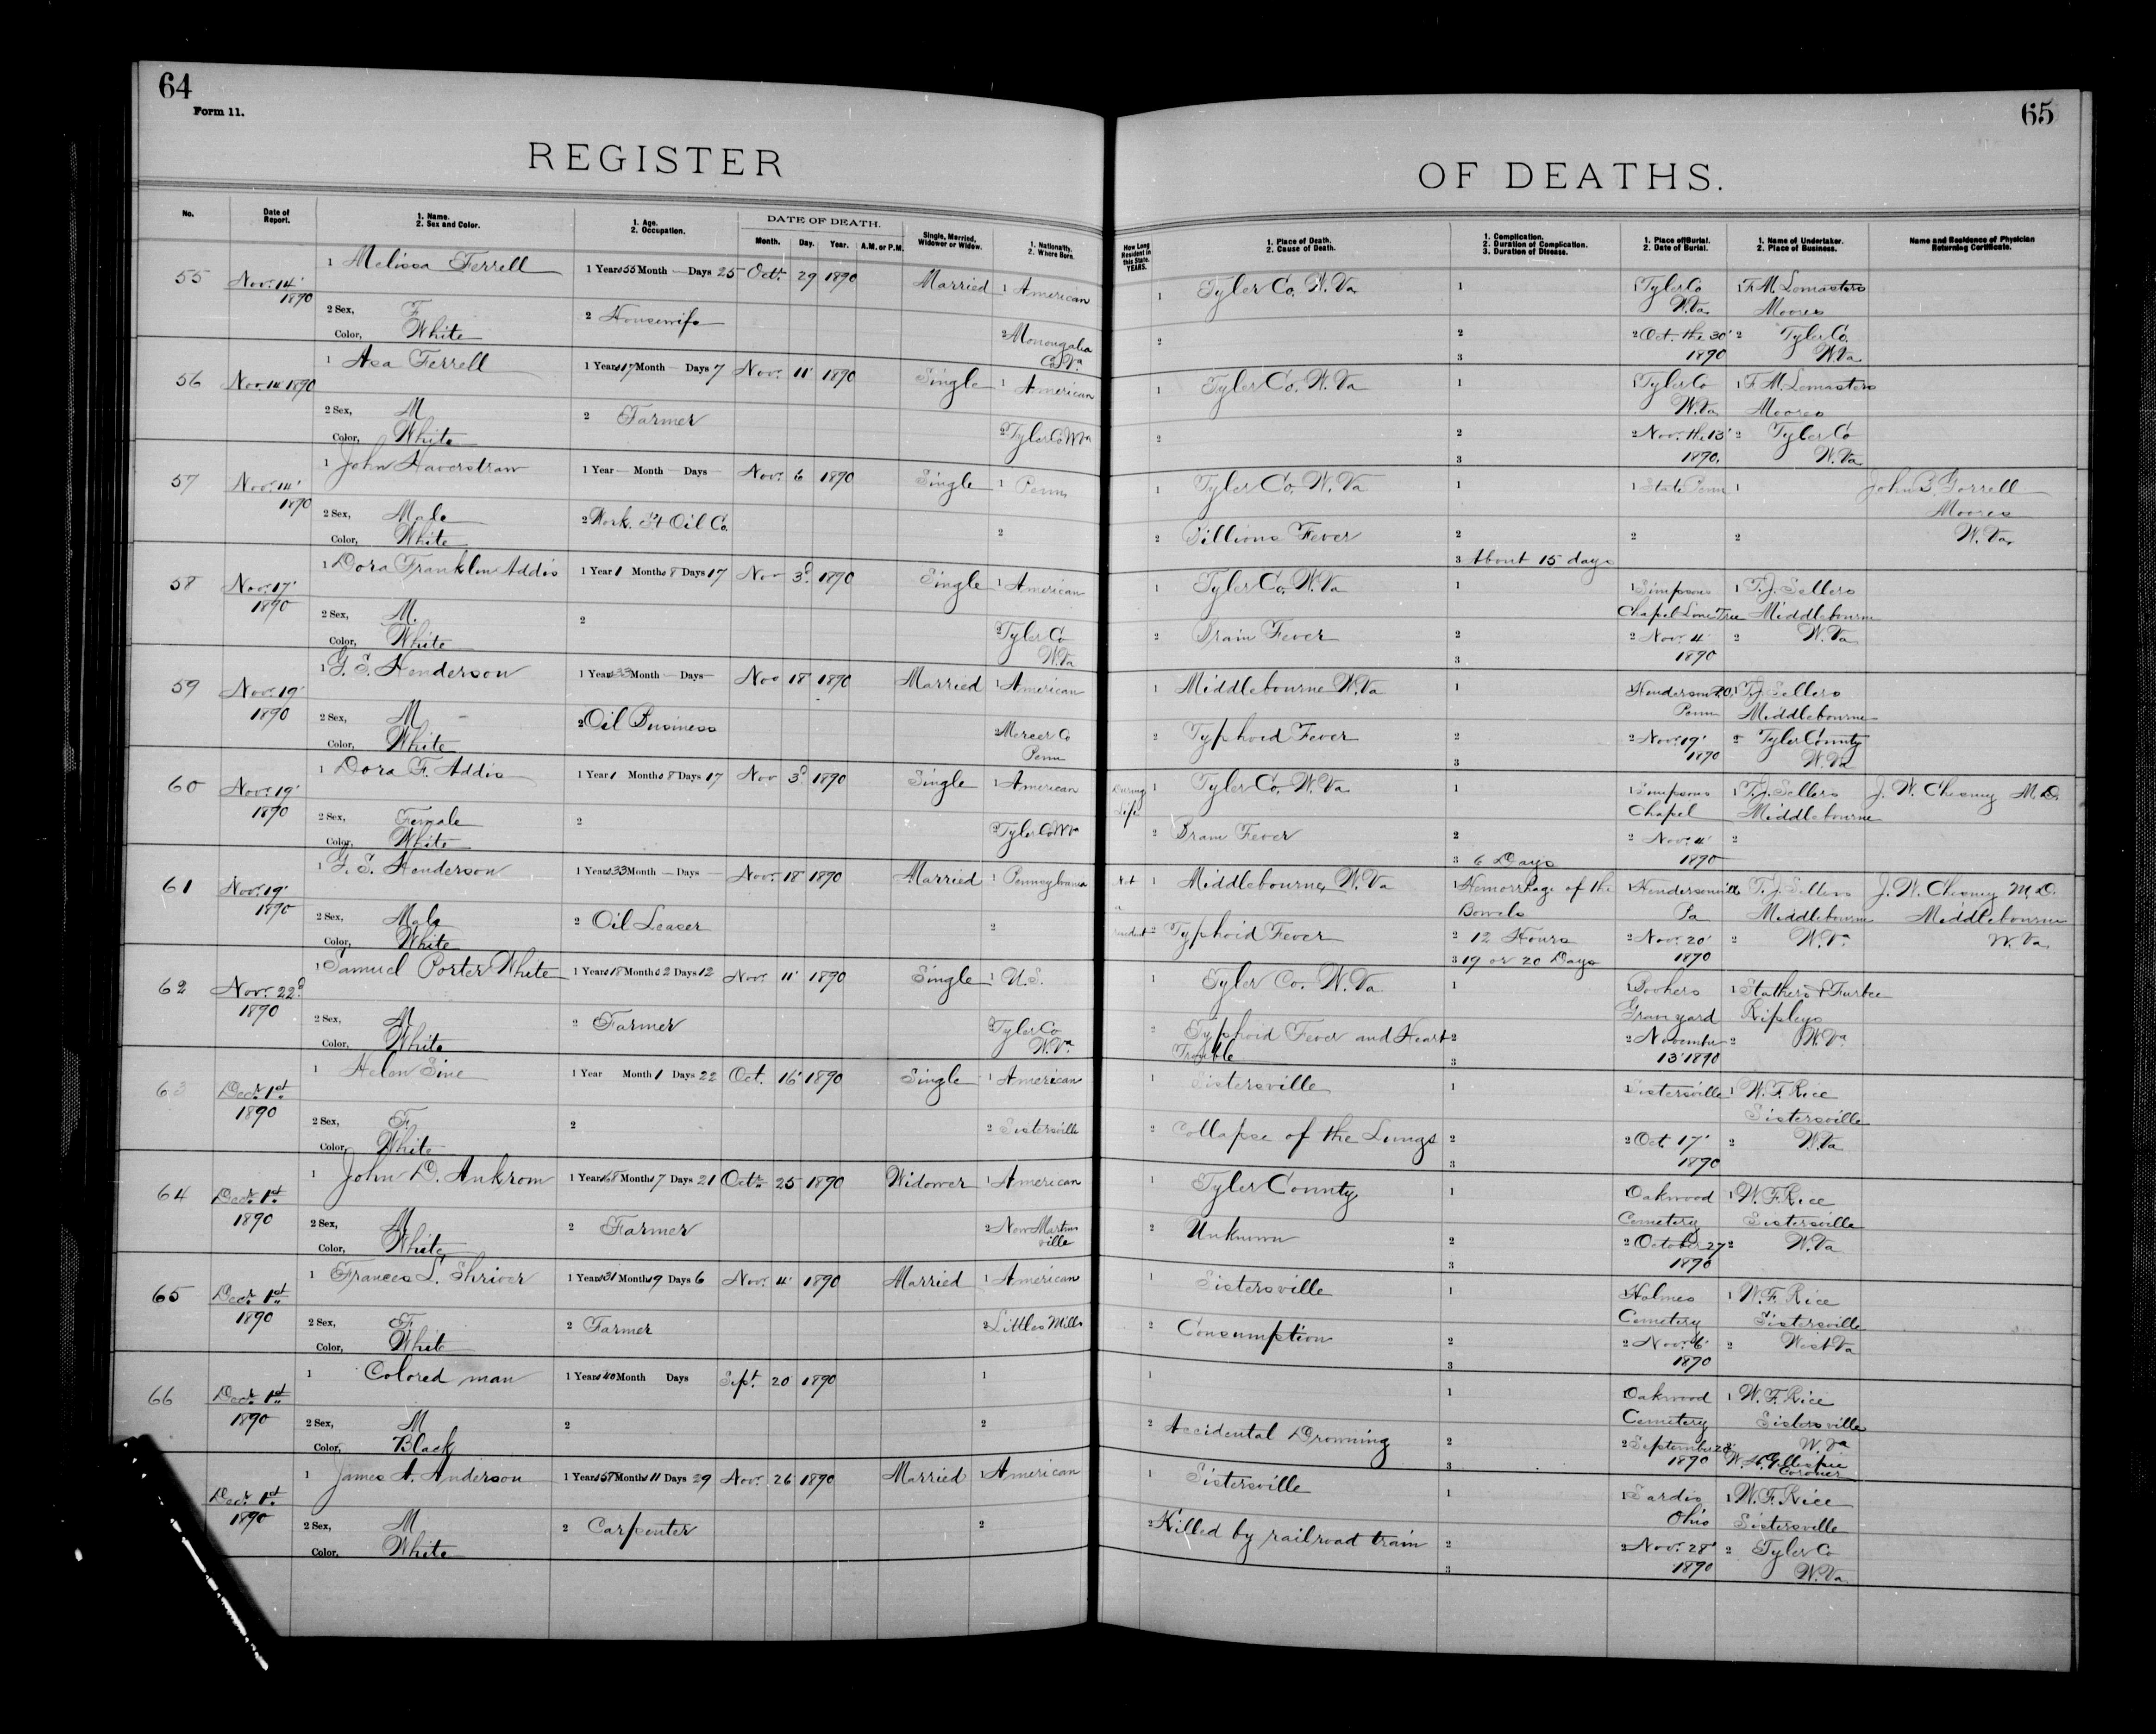 64
Form 11.
REGISTER
No.
Date of Report.
1. Name.
2. Sex and Color.
1. Age.
2. Occupation.
DATE OF DEATH.
Month. Day. Year. A.M. or P.M.
Single, Married, Widower or Widow.
1. Nationality.
2. Where Born.
55 Nov. 14' 1890 1 Melissa Ferrell 1 Years 55 Month — Days 25 Oct. 29 1890 Married 1 American
2 Sex, F 2 Housewife 2 Monongalia Co. Va.
Color, White
56 Nov. 14 1890 1 Asa Ferrell 1 Years 17 Month — Days 7 Nov. 11' 1890 Single 1 American
2 Sex, M 2 Farmer 2 Tyler Co W Va
Color, White
57 Nov. 14' 1890 1 John Haverstraw 1 Year — Month — Days — Nov. 6 1890 Single 1 Penn
2 Sex, Male 2 Work. Oil Co. 2
Color, White
58 Nov. 17' 1890 1 Dora Franklin Addis 1 Year 1 Months 8 Days 17 Nov 3d 1890 Single 1 American
2 Sex, M. 2 2 Tyler Co W.Va
Color, White
59 Nov. 19' 1890 1 G. S. Henderson 1 Years 33 Month — Days — Nov 18' 1890 Married 1 American
2 Sex, M 2 Oil Business 2 Mercer Co Penn
Color, White
60 Nov. 19' 1890 1 Dora F. Addis 1 Year 1 Months 8 Days 17 Nov 3d 1890 Single 1 American
2 Sex, Female 2 2 Tyler Co W Va
Color, White
61 Nov. 19' 1890 1 G. S. Henderson 1 Years 33 Month — Days — Nov. 18' 1890 Married 1 Pennsylvania
2 Sex, Male 2 Oil Leaser 2
Color, White
62 Nov. 22d 1890 1 Samuel Porter White 1 Years 18 Months 2 Days 12 Nov. 11' 1890 Single 1 U.S.
2 Sex, M 2 Farmer 2 Tyler Co W.Va.
Color, White
63 Dec. 1st 1890 1 Helen Sine 1 Year Month 1 Days 22 Oct. 16' 1890 Single 1 American
2 Sex, F. 2 2 Sistersville
Color, White
64 Dec. 1st 1890 1 John D. Ankrom 1 Years 68 Months 7 Days 21 Oct. 25 1890 Widower 1 American
2 Sex, M 2 Farmer 2 New Martinsville
Color, White
65 Dec. 1st 1890 1 Frances L. Shriver 1 Years 31 Months 9 Days 6 Nov. 4' 1890 Married 1 American
2 Sex, F. 2 Farmer 2 Littles Mills
Color, White
66 Dec. 1st 1890 1 Colored man 1 Years 40 Month Days Sept. 20 1890 1
2 Sex, M 2 2
Color, Black
Dec. 1st 1890 1 James A. Anderson 1 Years 58 Months 11 Days 29 Nov. 26 1890 Married 1 American
2 Sex, M 2 Carpenter 2
Color, White
65
OF DEATHS.
How Long Resident in this State. YEARS.
1. Place of Death.
2. Cause of Death.
1. Complication.
2. Duration of Complication.
3. Duration of Disease.
1. Place of Burial.
2. Date of Burial.
1. Name of Undertaker.
2. Place of Business.
Name and Residence of Physician Returning Certificate.
1 Tyler Co. W. Va 1 1 Tyler Co W.Va 1 F. M. Lemasters Moores
2 2 3 2 Oct. the 30' 1890 2 Tyler Co. W.Va
1 Tyler Co. W. Va 1 1 Tyler Co W.Va 1 F. M. Lemasters Moores
2 2 3 2 Nov. the 13' 1890. 2 Tyler Co W.Va
1 Tyler Co. W. Va 1 1 State Penn 1 John B. Gorrell Moores W. Va.
2 Billious Fever 2 3 About 15 days 2 2
1 Tyler Co. W. Va 1 1 Simpsons Chapel Lone Tree 1 T. J. Sellers Middlebourne
2 Brain Fever 2 3 2 Nov. 4' 1890 2 W. Va
1 Middlebourne W. Va 1 1 Henderson P.O. Penn 1 T. J. Sellers Middlebourne
2 Typhoid Fever 2 3 2 Nov. 19' 1890 2 Tyler County W. Va
During Life 1 Tyler Co. W. Va 1 1 Simpsons Chapel 1 T. J. Sellers Middlebourne J. W. Chesney M.D.
2 Brain Fever 2 3 6 Days 2 Nov. 4' 1890 2
Not a resident 1 Middlebourne, W. Va 1 Hemorrhage of the Bowels 1 Hendersonville Pa T. J. Sellers Middlebourne J. W. Chesney M.D. Middlebourne
2 Typhoid Fever 2 12 Hours 3 19 or 20 Days 2 Nov. 20' 1890 2 W. Va. W. Va.
1 Tyler Co. W. Va 1 1 Bookers Graveyard 1 Stathers & Furbee Ripleys
2 Typhoid Fever and Heart Trouble 2 3 2 November 13' 1890 2 W. Va.
1 Sistersville 1 1 Sistersville 1 W. F. Rice Sistersville
2 Collapse of the Lungs 2 3 2 Oct 17' 1890 2 W. Va
1 Tyler County 1 1 Oakwood Cemetery 1 W. F. Rice Sistersville
2 Unknown 2 3 2 October 27 1890 2 W. Va
1 Sistersville 1 1 Holmes Cemetery 1 W. F. Rice Sistersville
2 Consumption 2 3 2 Nov. 6' 1890 2 West Va
1 1 1 Oakwood Cemetery 1 W. F. Rice Sistersville
2 Accidental Drowning 2 3 2 September 1890 W. Va W. H. Gillispie Coroner
1 Sistersville 1 1 Sardis Ohio 1 W. F. Rice Sistersville
2 Killed by railroad train 2 3 2 Nov. 28' 1890 2 Tyler Co W. Va